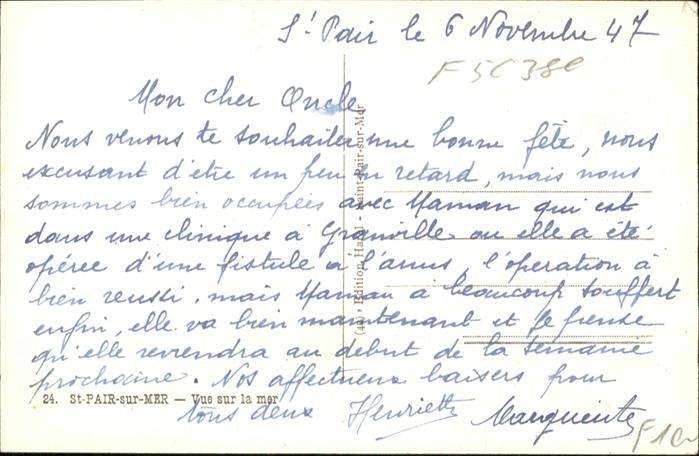 St Pair le 6 Novembre 47
F5C380
Mon cher Oncle
Nous venons te souhaiter une bonne fête, nous
excusant d'être un peu en retard, mais nous
sommes bien occupées avec Maman qui est
dans une clinique à Granville ou elle a été
opérée d'une fistule a l'anus, l'operation à
bien reussi. mais Maman a beaucoup souffert
enfin, elle va bien maintenant et je pense
qu'elle reviendra au debut de la semaine
prochaine. Nos affectueux baisers pour
tous deux Henriette Marguerite
24. St-PAIR-sur-MER — Vue sur la mer
Edition Hamel - Saint-Pair-sur-Mer